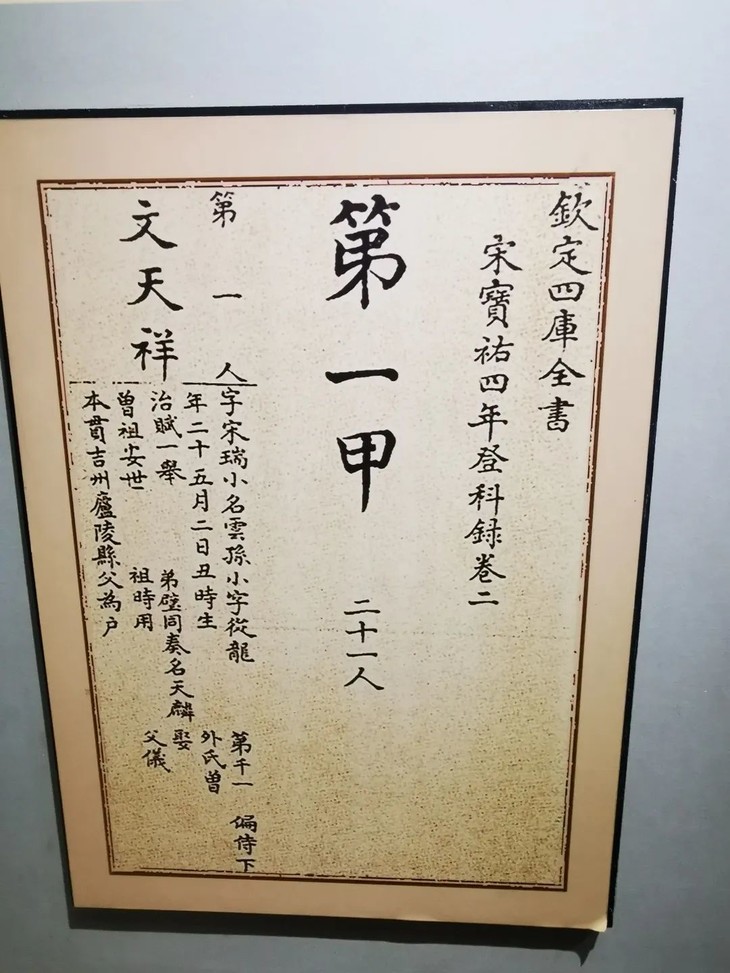 欽定四庫全書
宋寶祐四年登科録卷二
第一甲 二十一人
第一人
文天祥
字宋瑞小名雲孫小字從龍 第千一 偏侍下
年二十五月二日丑時生 外氏曾
治賦一舉 弟璧同奏名天麟 娶
曾祖安世 祖時用 父儀
本貫吉州廬陵縣父為户